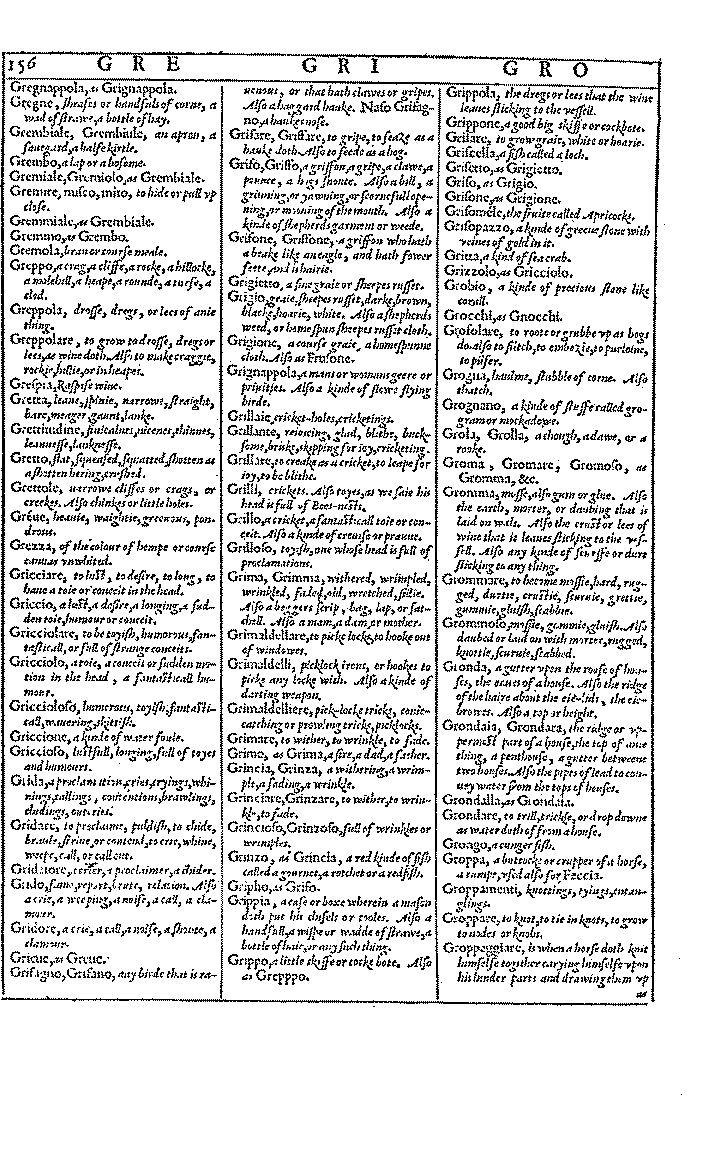 156 G R E G R I G R O
Gregnappola, as Grignappola.
Gregne, sheafes or handfuls of corne, a
wad of strawe, a bottle of hay.
Grembiale, Grembiule, an apron, a
safegard, a halfe kirtle.
Grembo, a lap or a bosome.
Gremiale, Gremiolo, as Embiale.
Gremire, misco, mito, to hide or pull vp
close.
Gremmiale, as Grembiale.
Gremmo, as Grembo.
Gremola, bran or course meale.
Greppo, a crag, a cliffe, a rocke, a hillocke,
a molehill, a heape, a rounde, a turfe, a
clod.
Greppola, drosse, dregs, or lees of anie
thing.
Greppolare, to grow to drosse, dregs or
lees, as wine doth. Also to make craggie,
rockie, hillie, or in heapes.
Grespia, Raspise wine.
Gretta, leane, spinie, narrowe, straight,
bare, meager, gaunt, lanke.
Grettitudine, finicalnes, nicenes, thinnes,
leannesse, lanknesse.
Gretto, flat, squeased, squatted, shotten as
a shotten hering, crushed.
Grettole, narrowe cliffes or crags, or
creekes. Also chinkes or little holes.
Greue, heauie, waightie, greeuous, pon-
drous.
Grezza, of the colour of hempe or course
canuas vnwhited.
Gricciare, to lust, to desire, to long, to
haue a toie or conceit in the head.
Griccio, a lust, a desire, a longing, a sud-
den toie, humour or conceit.
Gricciolare, to be toyish, humorous, fan-
tasticall, or full of strange conceits.
Gricciolo, a toie, a conceit or sudden mo-
tion in the head, a fantasticall hu-
mour.
Griccioloso, humorous, toyish, fantasti-
call, wauering, skittish.
Griccione, a kinde of water foule.
Griccioso, lustfull, longing, full of toyes
and humours.
Grida, a proclamation, cries, cryings, whi-
nings, callings, contentions, brawlings,
chidings, outcries.
Gridare, to proclaime, publish, to chide,
braule, striue, or contend, to crie, whine,
weepe, call, or call out.
Gridatore, a crier, a proclaimer, a chider.
Grido, fame, report, brute, relation. Also
a crie, a weeping, a noise, a call, a cla-
mour.
Gridore, a crie, a call, a noise, a shoute, a
clamour.
Grieue, as Greue.
Grifagno, Grifano, any birde that is ra-
uenous, or that hath clawes or gripes.
Also a haggard hauke. Naso Grifag-
no, a hauke nose.
Grifare, Griffare, to gripe, to sease as a
hauke doth. Also to feede as a hog.
Grifo, Griffo, a griffon, a gripe, a clawe, a
pounce, a hogs snoute. Also a bill, a
grinning, or yawning, or scornefull ope-
ning, or mowing of the mouth. Also a
kinde of shepherds garment or weede.
Grifone, Griffone, a griffon who hath
a beake like an eagle, and hath fower
feete, and is hairie.
Grigietto, a fine graie or sheepes russet.
Grigio, graie, sheepes russet, darke, brown,
blacke, hoarie, white. Also a shepherds
weed, or homespun sheepes russet cloth.
Grigione, a course graie, a homespunne
cloth. Also as Frusone.
Grignappola, a mans or womans geere or
priuities. Also a kinde of flewe flying
birde.
Grillaie, cricket-holes, cricketings.
Grillante, reioicing, glad, blithe, buck-
some, briske, skipping for ioy, cricketing.
Grillare, to croake as a cricket, to leape for
ioy, to be blithe.
Grilli, crickets. Also toyes, as we saie his
head is full of Bees-nests.
Grillo, a cricket, a fantasticall toie or con-
ceit. Also a kinde of creuis or praune.
Grilloso, toyish, one whose head is full of
proclamations.
Grima, Grimma, withered, wrimpled,
wrinkled, faded, old, wretched, sillie.
Also a beggers scrip, bag, lap, or sat-
chell. Also a mam, a dam, or mother.
Grimaldellare, to picke locks, to hooke out
of windowes.
Grimaldelli, picklock irons, or hookes to
picke any locke with. Also a kinde of
darting weapon.
Grimaldelliere, pick-locke tricks, conie-
catching or prowling tricks, picklocks.
Grimare, to wither, to wrinkle, to fade.
Grimo, as Grima, a sire, a dad, a father.
Grincia, Grinza, a withering, a wrim-
ple, a fading, a wrinkle.
Grinciare, Grinzare, to wither, to wrin-
kle, to fade.
Grincioso, Grinzoso, full of wrinkles or
wrimples.
Grinzo, as Grincia, a red kinde of fish
called a gournet, a rotchet or a redfish.
Gripho, as Grifo.
Grippia, a case or boxe wherein a mason
doth put his chisels or tooles. Also a
handfull, a wispe or wadde of strawe, a
bottle of haie, or any such thing.
Grippo, a little skiffe or cocke bote. Also
as Grepppo.
Grippola, the dregs or lees that the wine
leaues sticking to the vessell.
Grippone, a good big skiffe or cockbote.
Grisare, to grow graie, white or hoarie.
Griscella, a fish called a loch.
Grisetto, as Grigietto.
Griso, as Grigio.
Grisone, as Grigione.
Grisomele, the fruite called Apricocks.
Grisopazzo, a kinde of greene stone with
veines of gold in it.
Gritta, a kind of sea crab.
Grizzolo, as Gricciolo.
Grobio, a kinde of precious stone like
corall.
Grocchi, as Gnocchi.
Grofolare, to roote or grubbe vp as hogs
do. also to filtch, to embezle, to purloine,
to pilfer.
Grogna, haulme, stubble of corne. Also
thatch.
Grognano, a kinde of stuffe called gro-
gram or mockadowe.
Grola, Grolla, a chough, a dawe, or a
rooke.
Groma, Gromare, Gromoso, as
Gromma, &c.
Gromma, mosse, also gum or glue. Also
the earth, morter, or daubing that is
laid on wals. Also the crust or lees of
wine that it leaues sticking to the ves-
sell. Also any kinde of scurffe or durt
sticking to any thing.
Grommare, to become mossie, hard, rug-
ged, durtie, crustie, scuruie, grettie,
gummie, gluish, scabbie.
Grommoso, mossie, gummie, gluish. Also
daubed or laid on with morter, rugged,
knottie, scuruie, scabbed.
Gronda, a gutter vpon the roofe of hou-
ses, the eaues of a house. Also the ridge
of the haire about the eie-lids, the eie-
browes. Also a top or height.
Grondaia, Grondara, the ridge or vp-
permost part of a house, the top of anie
thing, a penthouse, a gutter betweene
two houses. Also the pipes of lead to con-
uey water from the tops of houses.
Grondalla, as Grondaia.
Grondare, to trill, trickle, or drop downe
as water doth off from a house.
Groago, a cunger fish.
Groppa, a buttocke or crupper of a horse,
a rumpe, vsed also for Faccia.
Groppamenti, knottings, tyings, intan-
glings.
Groppare, to knot, to tie in knots, to grow
to nodes or knobs.
Groppeggiare, is when a horse doth knit
himselfe together carying himselfe vpon
his hinder parts and drawing them vp
as